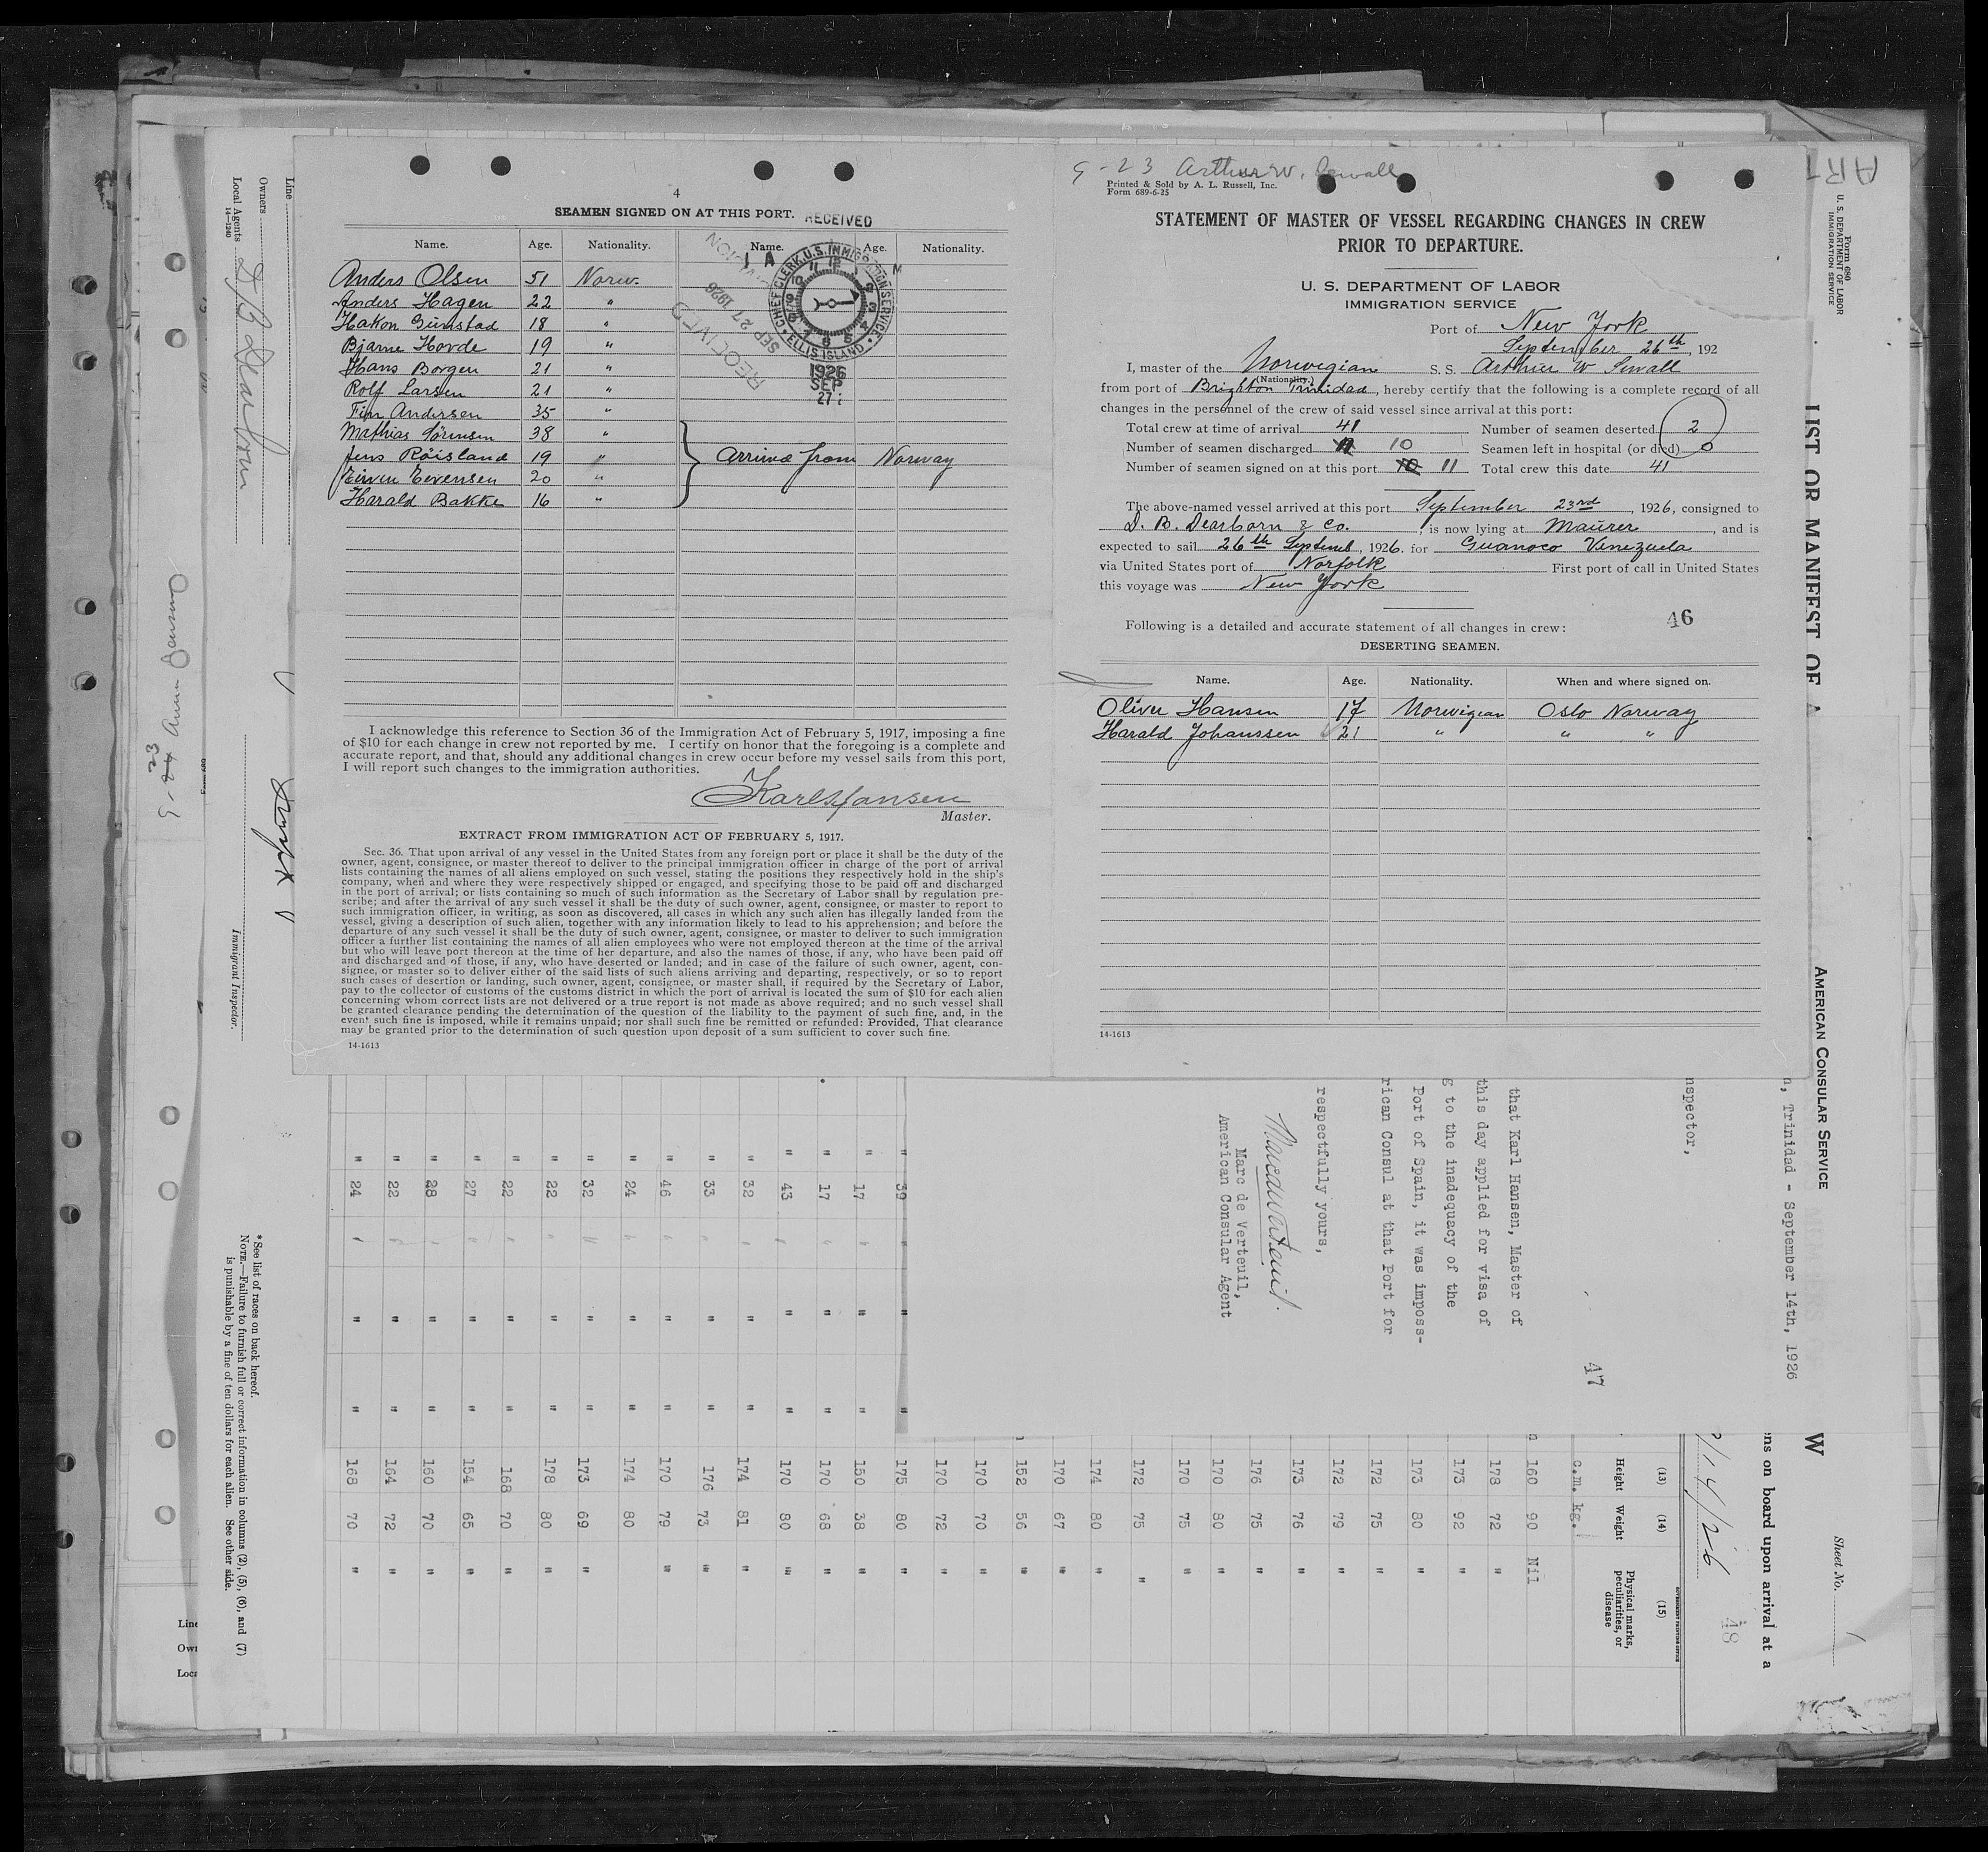 4
SEAMEN SIGNED ON AT THIS PORT.
RECEIVED
Name. Age. Nationality. Name. Age. Nationality.
CHIEF CLERK, U.S. IMMIGRATION SERVICE
ELLIS ISLAND
1926
SEP
27
RECEIVED
SEP 27 1926
Anders Olsen 51 Norw.
Anders Hagen 22 "
Hakon Grimstad 18 "
Bjarne Hovde 19 "
Hans Borgen 21 "
Rolf Larsen 21 "
Finn Andersen 35 "
Mathias Sörensen 38 "
Jens Röisland 19 " } Arrived from Norway
Eivin Evensen 20 "
Harald Bakke 16 "
I acknowledge this reference to Section 36 of the Immigration Act of February 5, 1917, imposing a fine
of $10 for each change in crew not reported by me. I certify on honor that the foregoing is a complete and
accurate report, and that, should any additional changes in crew occur before my vessel sails from this port,
I will report such changes to the immigration authorities.
Karl Hansen
Master.
EXTRACT FROM IMMIGRATION ACT OF FEBRUARY 5, 1917.
Sec. 36. That upon arrival of any vessel in the United States from any foreign port or place it shall be the duty of the
owner, agent, consignee, or master thereof to deliver to the principal immigration officer in charge of the port of arrival
lists containing the names of all aliens employed on such vessel, stating the positions they respectively hold in the ship's
company, when and where they were respectively shipped or engaged, and specifying those to be paid off and discharged
in the port of arrival; or lists containing so much of such information as the Secretary of Labor shall by regulation pre-
scribe; and after the arrival of any such vessel it shall be the duty of such owner, agent, consignee, or master to report to
such immigration officer, in writing, as soon as discovered, all cases in which any such alien has illegally landed from the
vessel, giving a description of such alien, together with any information likely to lead to his apprehension; and before the
departure of any such vessel it shall be the duty of such owner, agent, consignee, or master to deliver to such immigration
officer a further list containing the names of all alien employees who were not employed thereon at the time of the arrival
but who will leave port thereon at the time of her departure, and also the names of those, if any, who have been paid off
and discharged and of those, if any, who have deserted or landed; and in case of the failure of such owner, agent, con-
signee, or master so to deliver either of the said lists of such aliens arriving and departing, respectively, or so to report
such cases of desertion or landing, such owner, agent, consignee, or master shall, if required by the Secretary of Labor,
pay to the collector of customs of the customs district in which the port of arrival is located the sum of $10 for each alien
concerning whom correct lists are not delivered or a true report is not made as above required; and no such vessel shall
be granted clearance pending the determination of the question of the liability to the payment of such fine, and, in the
event such fine is imposed, while it remains unpaid; nor shall such fine be remitted or refunded: Provided, That clearance
may be granted prior to the determination of such question upon deposit of a sum sufficient to cover such fine.
14-1613
9-23 Arthur W. Sewall
Printed & Sold by A. L. Russell, Inc.
Form 689-6-25
STATEMENT OF MASTER OF VESSEL REGARDING CHANGES IN CREW
PRIOR TO DEPARTURE.
U. S. DEPARTMENT OF LABOR
IMMIGRATION SERVICE
Port of New York
September 26th, 192
I, master of the Norwegian S. S. Arthur W Sewall
(Nationality.)
from port of Brighton Trinidad, hereby certify that the following is a complete record of all
changes in the personnel of the crew of said vessel since arrival at this port:
Total crew at time of arrival 41 Number of seamen deserted 2
Number of seamen discharged 11 10 Seamen left in hospital (or died) 0
Number of seamen signed on at this port 10 11 Total crew this date 41
The above-named vessel arrived at this port September 23rd, 1926, consigned to
D. B. Dearborn & Co., is now lying at Maurer, and is
expected to sail 26th Septemb, 1926. for Guanoco Venezuela
via United States port of Norfolk First port of call in United States
this voyage was New York
Following is a detailed and accurate statement of all changes in crew:
46
DESERTING SEAMEN.
Name. Age. Nationality. When and where signed on.
Oliver Hansen 17 Norwegian Oslo Norway
Harald Johanssen 21 " " "
14-1613
Line
Owners
Local Agents D B Dearborn
14-1240
Immigrant Inspector.
* See list of races on back hereof.
NOTE.—Failure to furnish full or correct information in columns (2), (5), (6), and (7)
is punishable by a fine of ten dollars for each alien. See other side.
Line
Own
Loca
ART
Form 680
U. S. DEPARTMENT OF LABOR
IMMIGRATION SERVICE
LIST OR MANIFEST OF A
W
AMERICAN CONSULAR SERVICE
n, Trinidad - September 14th, 1926
nspector,
47
that Karl Hansen, Master of
this day applied for visa of
g to the inadequacy of the
Port of Spain, it was imposs-
rican Consul at that Port for
respectfully yours,
Marc de Verteuil,
American Consular Agent
Sheet No. 1
ens on board upon arrival at a
/14/26
48
(13) (14) (15)
Height Weight Physical marks, peculiarities, or disease
c.m. kg.
160 90 Nil
173 72 "
173 92 "
173 80 "
172 75 "
172 79 "
173 76 "
176 75 "
170 80 "
170 75 "
172 75 "
174 80 "
170 67 "
152 56 "
170 70 "
170 72 "
" 39 " " 175 80 "
" 17 " " 150 38 "
" 17 " " 170 68 "
" 43 " " 170 80 "
" 32 " " 174 81 "
" 33 " " 176 73 "
" 46 " " 170 79 "
" 24 " " 174 80
" 32 " " 173 69 "
" 22 " " 178 80 "
" 22 " " 168 70 "
" 27 " " 154 65 "
" 28 " " 160 70 "
" 22 " " 164 72 "
" 24 " " 168 70 "